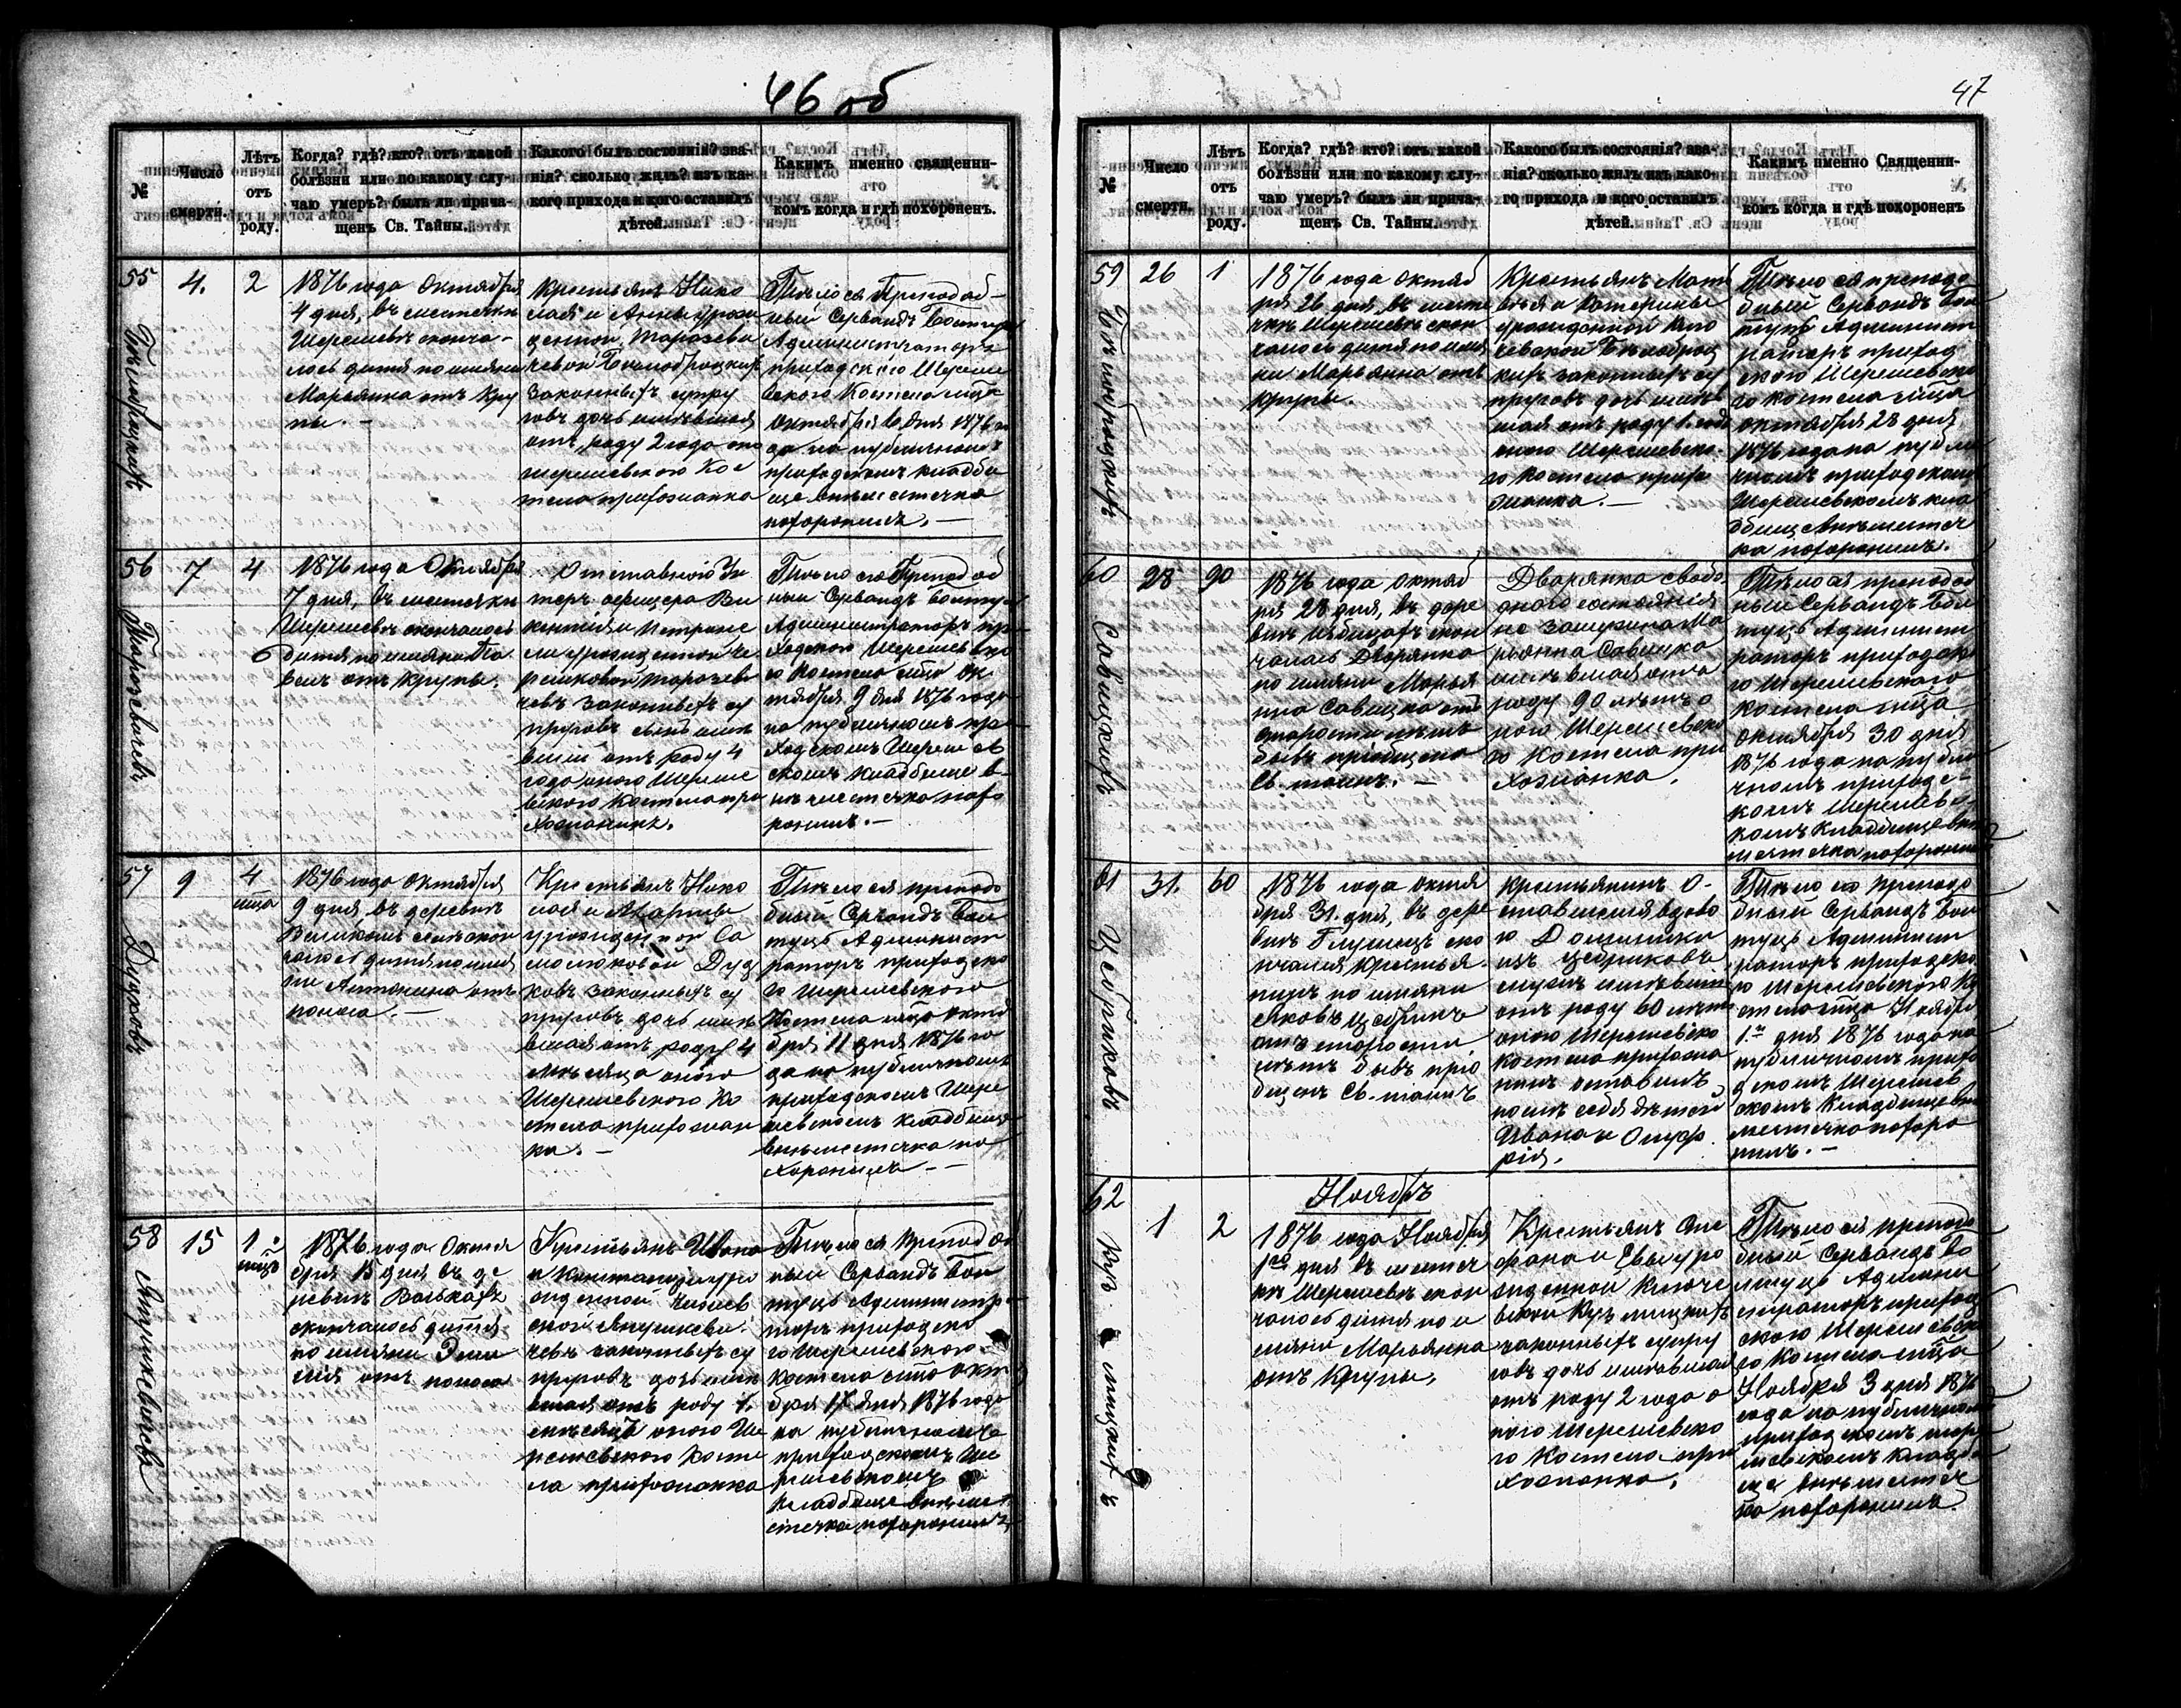 46 об
№
Число
смерти.
Лѣтъ
отъ
роду.
Когда? гдѣ? кто? отъ какой
болѣзни или по какому слу-
чаю умеръ? былъ ли прича-
щенъ Св. Тайны.
Какого былъ состоянія? зва-
нія? сколько жилъ? изъ ка-
кого прихода и кого оставилъ
дѣтей.
Какимъ именно священни-
комъ когда и гдѣ похороненъ.
55
4.
2
1876 года Октября
4 дня, въ местечкѣ
Шерешевѣ сконча-
лось дитя по имяни
Марьянна отъ кру
пы. —
Крестьянъ Нико
лая и Анны урож
денной Тарасеви
чевой Бѣлобродскихъ
законныхъ супру
говъ дочь имѣвшая
отъ роду 2 года она
шерешевского Ко
стела прихожанка
Тѣло ея Преподоб-
ный Сервандъ Болтуць
Администраторъ
приходского Шереше
вского Костела сего
Октября 6 дня 1876 го
да на публичномъ
приходскомъ кладби
ще внѣ местечка
похоронилъ. —
56
7
4
1876 года Октября
7 дня, въ местечкѣ
Шерешевѣ скончалось
дитя по имяни
отъ крупы.
Отставного Ун
теръ офицера Ви
кентія и Петронѐ
ли урожденной Че
решковой Тарасеви
чевъ законныхъ су
пруговъ сынъ имѣ
вшій отъ роду 4
года оного Шереше
вского Костела при
хожанинъ.
Тѣло его Преподоб
ный Сервандъ Болтуць
Администраторъ при
ходского Шерешевско
го Костела сего Ок
тября 9 дня 1876 года
на публичномъ при
ходскомъ Шерешев
скомъ кладбище в-
нѣ местечка похо
ронилъ. —
Тарасевичевъ
57
9
4
мца
1876 года Октября
9 дня, въ деревнѣ
Великомъ селѣ скон
чалось дитя по имя
ни Антонина отъ
поноса. —
Крестьянъ Нико
лая и Марыи
урожденной Са
молюковой Дуд
ковъ законныхъ су
пруговъ дочь имѣ
вшая отъ роду 4
мѣсяца оного
Шерешевского Ко
стела прихожан
ка. —
Тѣло ея преподо
бный Сервандъ Бол
туць Админист
раторъ приходско
го Шерешевского
Костела сего Октя
бря 11 дня 1876 го
да на публичномъ
приходскомъ Шере
шевскомъ кладбище
внѣ местечка по
хоронилъ — —
Дудковъ
58
15
1
мцъ
1876 года Октя
бря 15 дня въ де
ревнѣ
скончалось дитя
по имяни Эми
лія отъ поноса
Крестьянъ Ивана
и Констанціи уро
жденной
ской Янушкеви
чевъ законныхъ су
пруговъ дочь имѣ
вшая отъ роду 1.
мѣсяцъ оного Ше
решевского Косте
ла прихожанка
Тѣло ея Преподоб
ный Сервандъ Бол
туць Администра
торъ приходско
го Шерешевского
Костела сего Октя
бря 17 дня 1876 года
на публичномъ
приходскомъ Ше
решевскомъ
кладбище внѣ ме
стечка похоронилъ
Янушкевичевъ
47
№
Число
смерти.
Лѣтъ
отъ
роду.
Когда? гдѣ? кто? отъ какой
болѣзни или по какому слу-
чаю умеръ? былъ ли прича-
щенъ Св. Тайны.
Какого былъ состоянія? зва-
нія? сколько жилъ изъ како-
го прихода и кого оставилъ
дѣтей.
Какимъ именно Священни-
комъ когда и гдѣ похороненъ
59
26
1
1876 года Октяб
ря 26 дня, въ месте
чкѣ Шерешевѣ скон
чалось дитя по имя
ни Марьянна отъ
крупы.
Крестьянъ Мат
вѣя и Катерины
урожденной
Бѣлоброд
кихъ законныхъ су
пруговъ дочь имѣв
шая отъ роду 1. годъ
оного Шерешевско-
го Костела прихо
жанка. —
Тѣло ея преподо
бный Сервандъ Бол
туць Админист
раторъ приход
ского Шерешевско
го костела сего мца
октября 28 дня
1876 года на публи
чномъ приходскомъ
Шерешевскомъ кла
дбище внѣ местеч
ка похоронилъ.
60
28
90
1876 года Октяб
ря 28 дня, въ дере
внѣ скон
чалась Дворянка
по имяни Марья
нна Савицка отъ
старости лѣтъ
бывъ пріобщена
Св. таинъ. —
Дворянка свобо
дного состоянія
не замужна Ма
рьянна Савицка
имѣвшая отъ
роду 90 лѣтъ о
ного Шерешевско
го Костела при
хожанка.
Тѣло ея преподоб
ный Сервандъ Бол
туць Админист
раторъ приходско
го Шерешевского
костела сего мца
октября 30 дня
1876 года на публи
чномъ приходс-
комъ Шерешевс-
комъ кладбище внѣ
местечка похоронилъ
Савицкихъ
61
31.
60
1876 года Октя
бря 31. дня, въ дере
внѣ ско
нчался крестья
нинъ по имяни
Яковъ Цебрикъ
отъ старости
лѣтъ бывъ пріо
бщенъ Св. таинъ
Крестьянинъ о-
ставшейся вдово
ю Доминики
изъ Цебриковъ
мужъ имѣвшій
отъ роду 60 лѣтъ
оного Шерешевско
костела прихожа
нинъ оставилъ
послѣ себя дѣтей
Ивана и Онуф
рія.
Тѣло его преподо
бный Сервандъ Бол
туць Админист
раторъ приходско
го Шерешевского Ко
стела сего мца Ноября
1.го дня 1876 года на
публичномъ прихо
дскомъ Шерешев
скомъ кладбище внѣ
местечка похоро
нилъ. —
Цебриковъ
Ноябрь
62
1
2
1876 года Ноября
1го дня въ местеч
кѣ Шерешевѣ скон
чалось дитя по и
мяни Марьянна
отъ крупы,
Крестьянъ Сте
фана и Евы уро
жденной
законныхъ супру
говъ дочь имѣвшая
отъ роду 2 года о
ного Шерешевско
го Костела при
хожанка.
Тѣло ея преподо
бный Сервандъ Бо
лтуць Админи
страторъ приход
ского Шерешевско
го Костела сего мца
Ноября 3 дня 1876
года на публичномъ
приходскомъ Шере
шевскомъ кладби
ще внѣ местеч
ка похоронилъ.